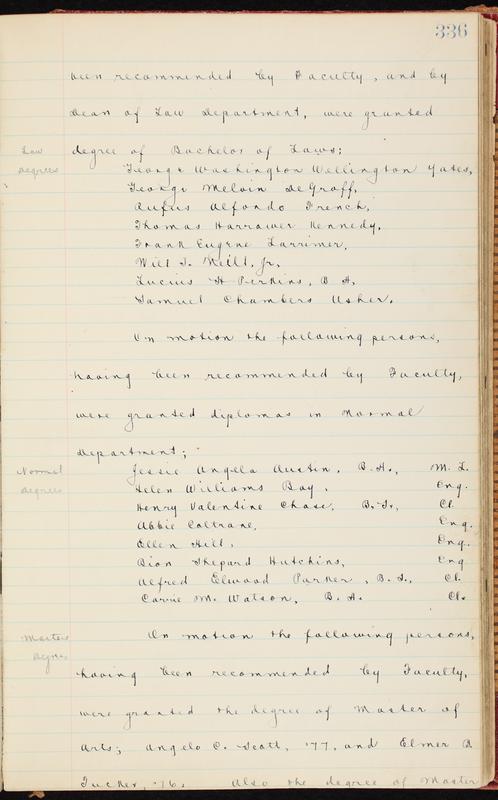 336
been recommended by Faculty, and by
Dean of Law Department, were granted
Law
degrees
degree of Bachelor of Laws:
George Washington Wellington Yates,
George Melvin DeGroff,
Rufus Alfondo French,
Thomas Harrawer Kennedy,
Frank Eugene Larrimer,
Will T. Neill, Jr.
Lucius H Perkins, B A.
Samuel Chambers Usher.
On motion the following persons,
having been recommended by Faculty,
were granted diplomas in Normal
department;
Normal
degrees
Jessie Angela Austin, B.A., M. L.
Helen Williams Bay, Eng.
Henry Valentine Chase, B.S., Cl.
Abbie Coltrane, Eng.
Ellen Hill, Eng.
Bion Shepard Hutchins, Eng
Alfred Elwood Parker, B.S., Cl.
Carrie M. Watson, B.A. Cl.
Masters
degree
On motion the following persons,
having been recommended by Faculty,
were granted the degree of Master of
Arts; Angelo C. Scott, '77, and Elmer B
Tucker, '76. Also the degree of Master